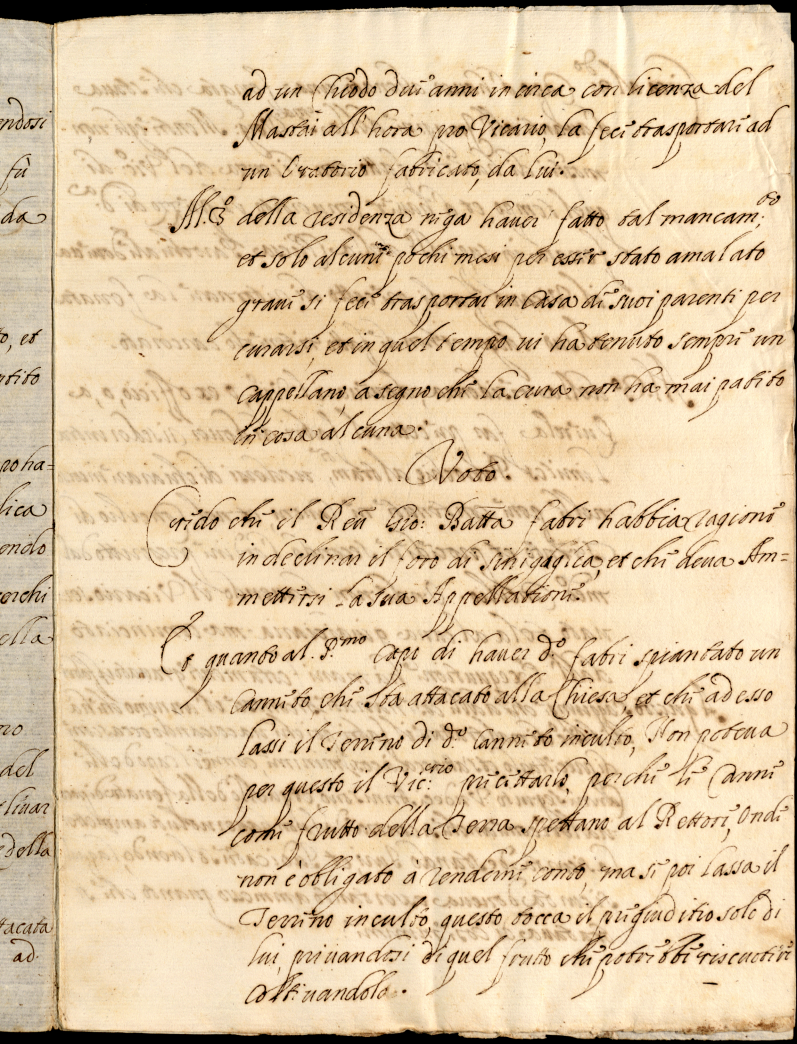 endosi
fù
da
to, et
ntito
lica
endo
erchi
ella
no
del
della
tacata
ad
ad un Chiodo dui anni in circa con licenza del
Mastai all'hora pro Vicario, la feci trasportari ad
un Oratorio fabricato, da lui.
della residenza niga haver fatto tal mancam:to
et solo alcuni pochi mesi per esser stato amalato
gravi si feci trasportar in Casa di suoi parenti per
curarsi, et in quel tempo vi ha tenuto sempri un
Cappellano, a segno chi la cura non ha mai patito
in cosa alcuna.
Voto.
Crido chi il Reu Gio: Batta Fabri habbia ragioni
in declinar il foro di Sinigaglia, et chi deva Am=
mettirsi la sua Appellationi.
Et quanto al P.mo capo di haver d.o Fabri spiantato un
Cannito chi sta attacato alla Chiesa, et chi adesso
lassi il Terrino di d.o Cannito inculto, Non poteva
per questo il Vic:rio pricittarlo, perchi li Canni
comi frutto della Terra spettano al Rettori, Ondi
non è obligato à rendirni conto, ma si poi lassa il
Terrino inculto, questo tocca il prigiuditio solo di
lui, privandosi di quel frutto chi potribbi riscuotiri
coltivandolo.